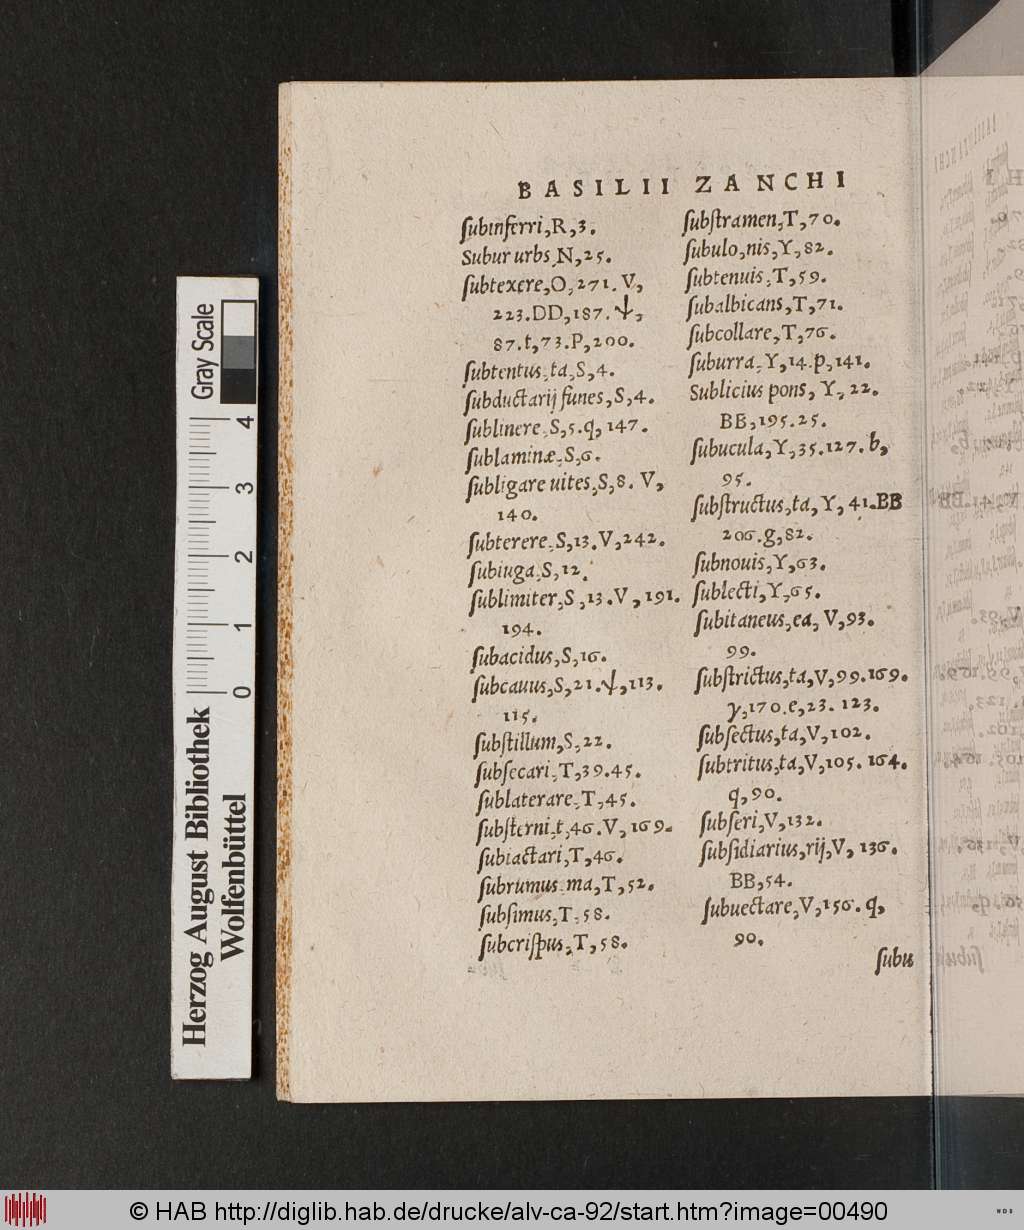 BASILII ZANCHI
ſubinferri,R,3.
Subur urbs,N,25.
ſubtexere,O,271. V,
223.DD,187.ψ,
87.t,73.P,200.
ſubtentus,ta,S,4.
ſubductarij funes,S,4.
ſublinere,S,5.q,147.
ſublaminæ,S,6.
ſubligare uites,S,8. V,
140.
ſubterere,S,13.V,242.
ſubiuga,S,12.
ſublimiter,S,13.V,191.
194.
ſubacidus,S,16.
ſubcauus,S,21.ψ,113.
115.
ſubſtillum,S,22.
ſubſecari,T,39.45.
ſublaterare,T,45.
ſubſterni,t,46.V,169.
ſubiactari,T,46.
ſubrumus,ma,T,52.
ſubſimus,T,58.
ſubcriſpus,T,58.
ſubſtramen,T,70.
ſubulo,nis,Y,82.
ſubtenuis,T,59.
ſubalbicans,T,71.
ſubcollare,T,76.
ſuburra,Y,14.p,141.
Sublicius pons, Y,22.
BB,195.25.
ſubucula,Y,35.127.b,
95.
ſubſtructus,ta,Y,41.BB
206.g,82.
ſubnouis,Y,63.
ſublecti,Y,65.
ſubitaneus,ea, V,93.
99.
ſubſtrictus,ta,V,99.169.
γ,170.e,23. 123.
ſubſectus,ta,V,102.
ſubtritus,ta,V,105. 164.
q,90.
ſubſeri,V,132.
ſubſidiarius,rij,V, 136.
BB,54.
ſubuectare,V,156.q,
90.
ſubu
Gray Scale
4
3
2
1
0
Herzog August Bibliothek
Wolfenbüttel
© HAB http://diglib.hab.de/drucke/alv-ca-92/start.htm?image=00490